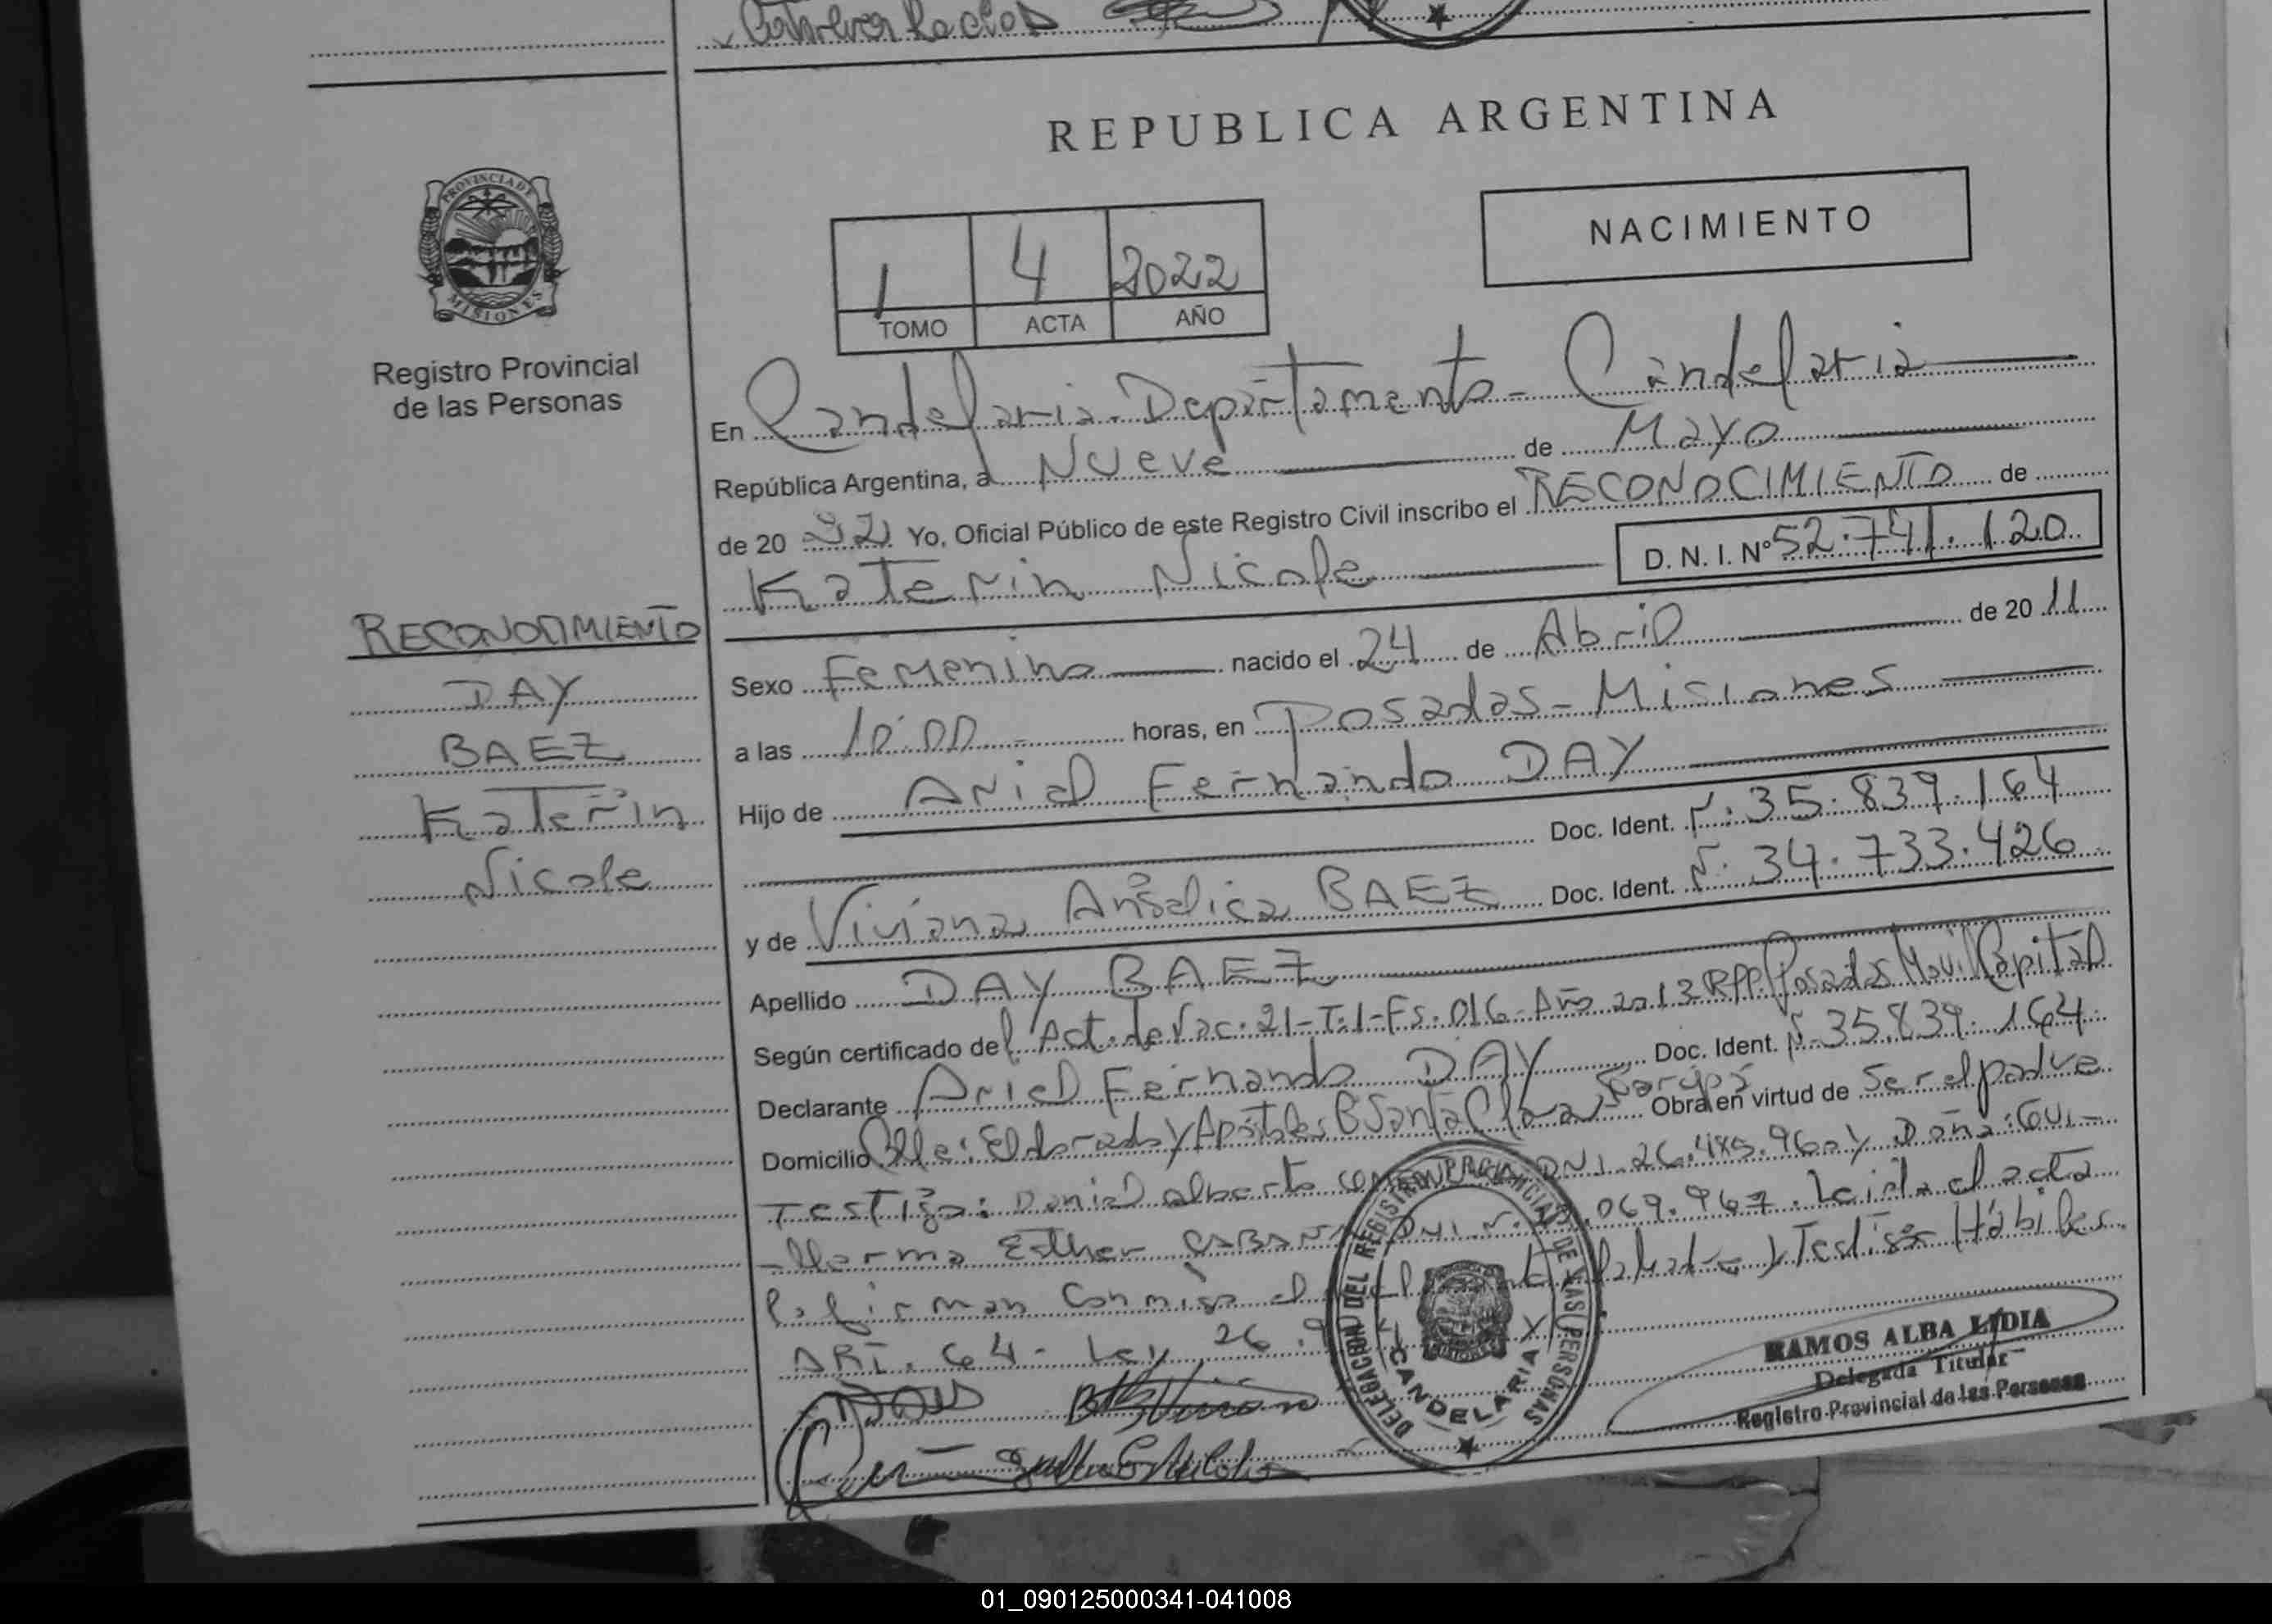 REPUBLICA ARGENTINA
PROVINCIA DE
MISIONES
Registro Provincial
de las Personas
NACIMIENTO
1 4 2022
TOMO ACTA AÑO
En Candelaria - Departamento - Candelaria
República Argentina, a Nueve de Mayo
de 20 22 Yo, Oficial Público de este Registro Civil inscribo el RECONOCIMIENTO de
Katerin Nicole D. N. I. Nº 52.741.120
RECONOCIMIENTO
DAY
BAEZ
Katerin
Nicole
Sexo Femenino nacido el 24 de Abril de 20 11
a las 10:00 - horas, en Posadas - Misiones
Hijo de Ariel Fernando DAY
Doc. Ident. N. 35.839.164
y de Viviana Angelica BAEZ Doc. Ident. N. 34.733.426
Apellido DAY BAEZ
Según certificado del Act. de Nac. 21 - T. 1 - Fs. 016 - Año 2013 RPP Posadas Movil Capital
Declarante Ariel Fernando DAY Doc. Ident. N. 35.839.164
Domicilio Calle: Eldorado y Apóstoles B Santa Clara - Garupá Obra en virtud de Ser el padre
Testigo: Daniel Alberto DNI. 26.485.960 y Doña: Gui-
-llerma Esther DNI N. .069.967. Leida el acta
la firman conmigo el y Testigos Hábiles
ART. 64 - Ley 26.
DELEGACION DEL REGISTRO PROVINCIAL DE LAS PERSONAS
CANDELARIA
RAMOS ALBA LIDIA
Delegada Titular
Registro Provincial de las Personas
01_090125000341-041008